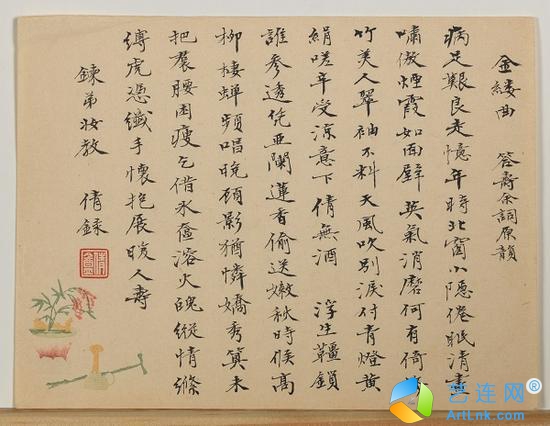 金縷曲 答壽余詞原韻
病足艱良走憶年時北窗小隱倦眠清晝
嘯傲煙霞如面壁英氣消磨何有倚
竹美人翠袖不料天風吹別淚付青燈黃
絹嗟年受涼意下倩無酒 浮生韁鎖
誰參透凭亞闌蓮香偷送嫩秋時候高
柳棲蟬頻唱晚顧影猶憐嬌秀算未
把裙腰困瘦乞借冰奩溶火魄縱情絛
縛虎憑纖手懷抱展暖人壽
鍊弟妝教 倩錄
艺连网®
ArtLnk.com